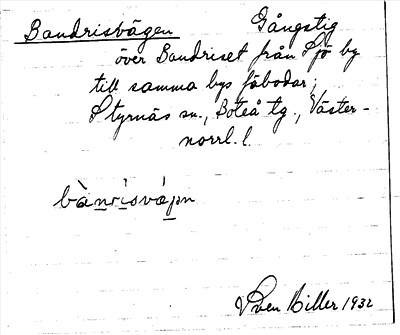 Bandrisvägen Gångstig
över Bandriset från Sjö by
till samma bys fäbodar;
Styrnäs sn., Boteå tg., Väster-
norrl. l.
bànrisvä́gɩn
Sven Hiller 1932